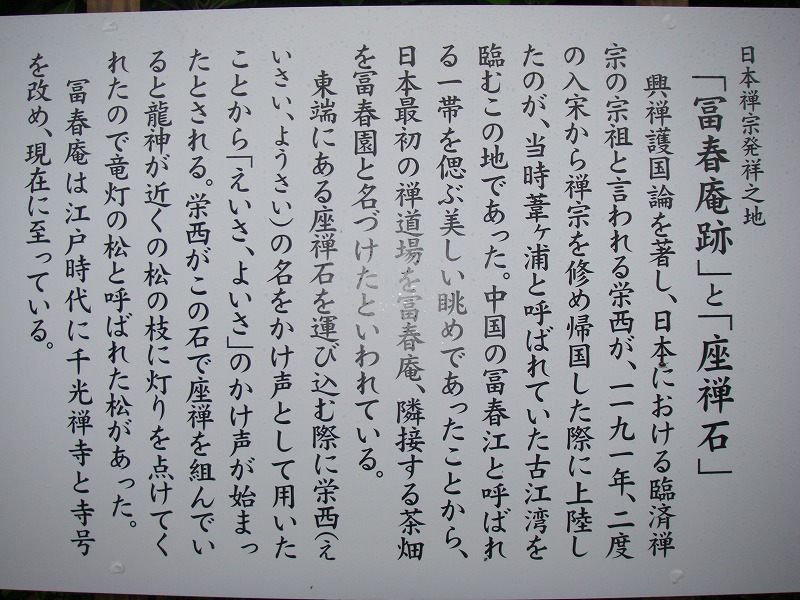 日本禅宗発祥之地
「冨春庵跡」と「座禅石」
興禅護国論を著し、日本における臨済禅
宗の宗祖と言われる栄西が、一一九一年、二度
の入宋から禅宗を修め帰国した際に上陸し
たのが、当時葦ヶ浦と呼ばれていた古江湾を
臨むこの地であった。中国の冨春江と呼ばれ
る一帯を偲ぶ美しい眺めであったことから、
日本最初の禅道場を冨春庵、隣接する茶畑
を冨春園と名づけたといわれている。
東端にある座禅石を運び込む際に栄西(え
いさい、ようさい)の名をかけ声として用いた
ことから「えいさ、よいさ」のかけ声が始まっ
たとされる。栄西がこの石で座禅を組んでい
ると龍神が近くの松の枝に灯りを点けてく
れたので竜灯の松と呼ばれた松があった。
冨春庵は江戸時代に千光禅寺と寺号
を改め、現在に至っている。